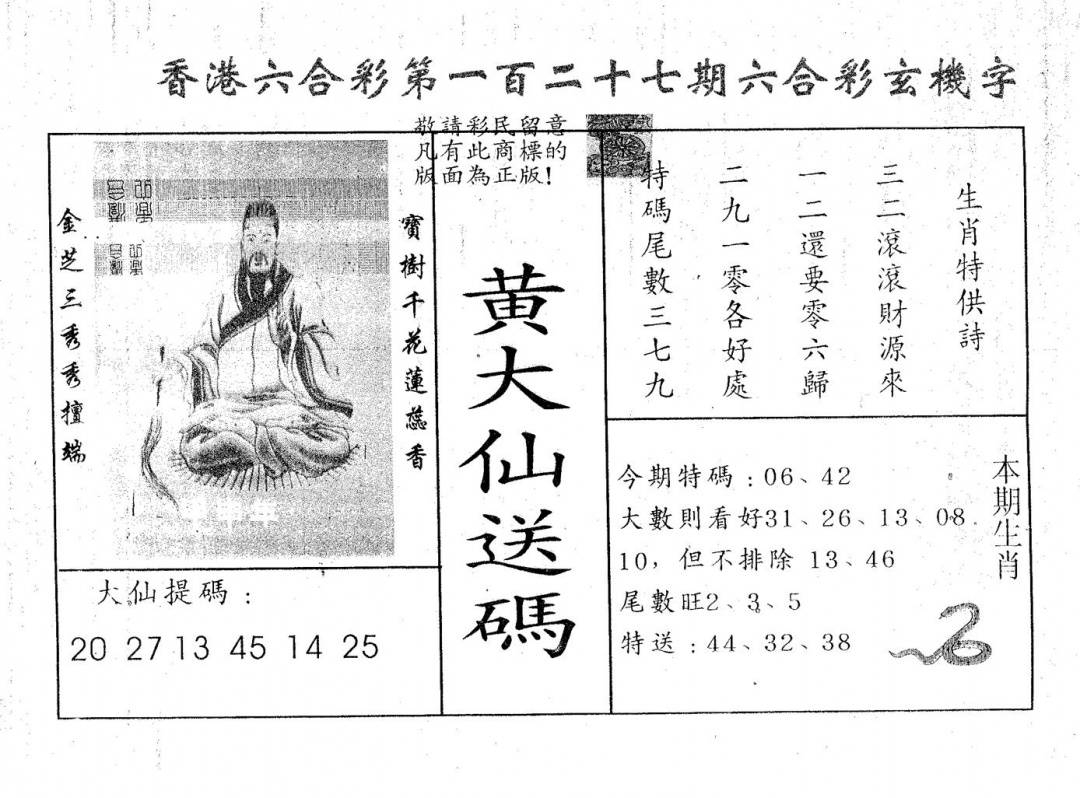 香港六合彩第一百二十七期六合彩玄機字
敬請彩民留意
凡有此商標的
版面為正版！
寶樹千花蓮蕊香
金芝三秀秀擅端
大仙提碼：
20 27 13 45 14 25
黃大仙送碼
生肖特供詩
三二滾滾財源來
一二還要零六歸
二九一零各好處
特碼尾數三七九
本期生肖
今期特碼：06、42
大數則看好31、26、13、08
10，但不排除 13、46
尾數旺2、3、5
特送：44、32、38